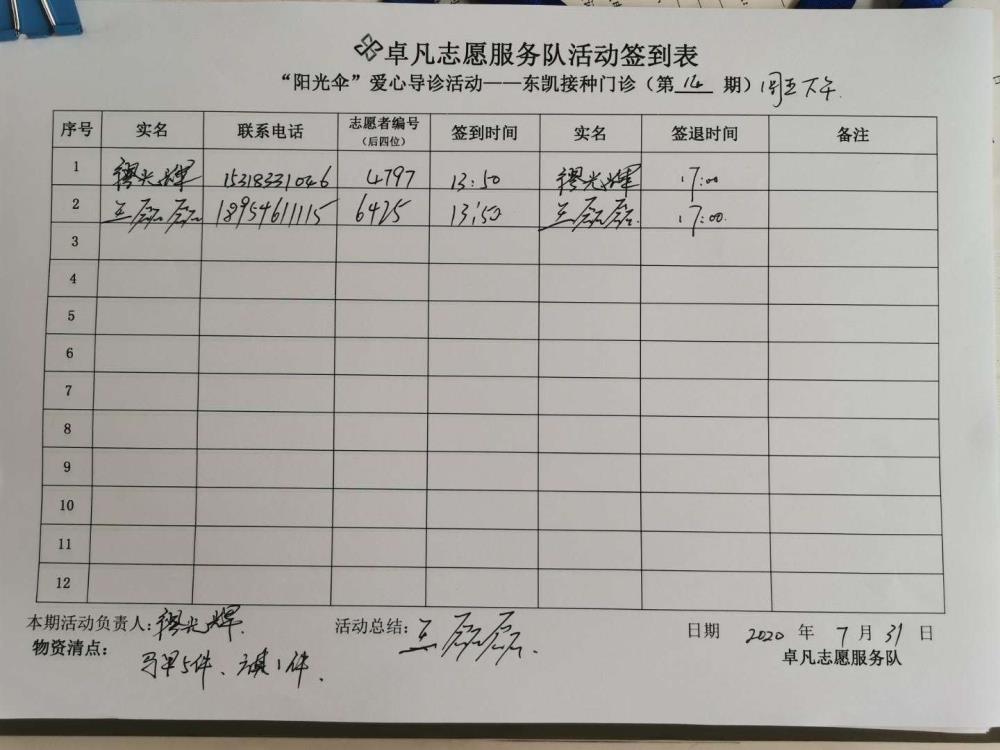 卓凡志愿服务队活动签到表
“阳光伞”爱心导诊活动——东凯接种门诊（第 14 期）周五下午.
序号 实名 联系电话 志愿者编号（后四位） 签到时间 实名 签退时间 备注
1 缪光辉 15318331046 4797 13:50 缪光辉 17:00
2 王磊磊 18954611115 6425 13:50 王磊磊. 17:00.
3
4
5
6
7
8
9
10
11
12
本期活动负责人：缪光辉. 活动总结：王磊磊. 日期 2020 年 7 月 31 日
物资清点：马甲5件、旗1件. 卓凡志愿服务队